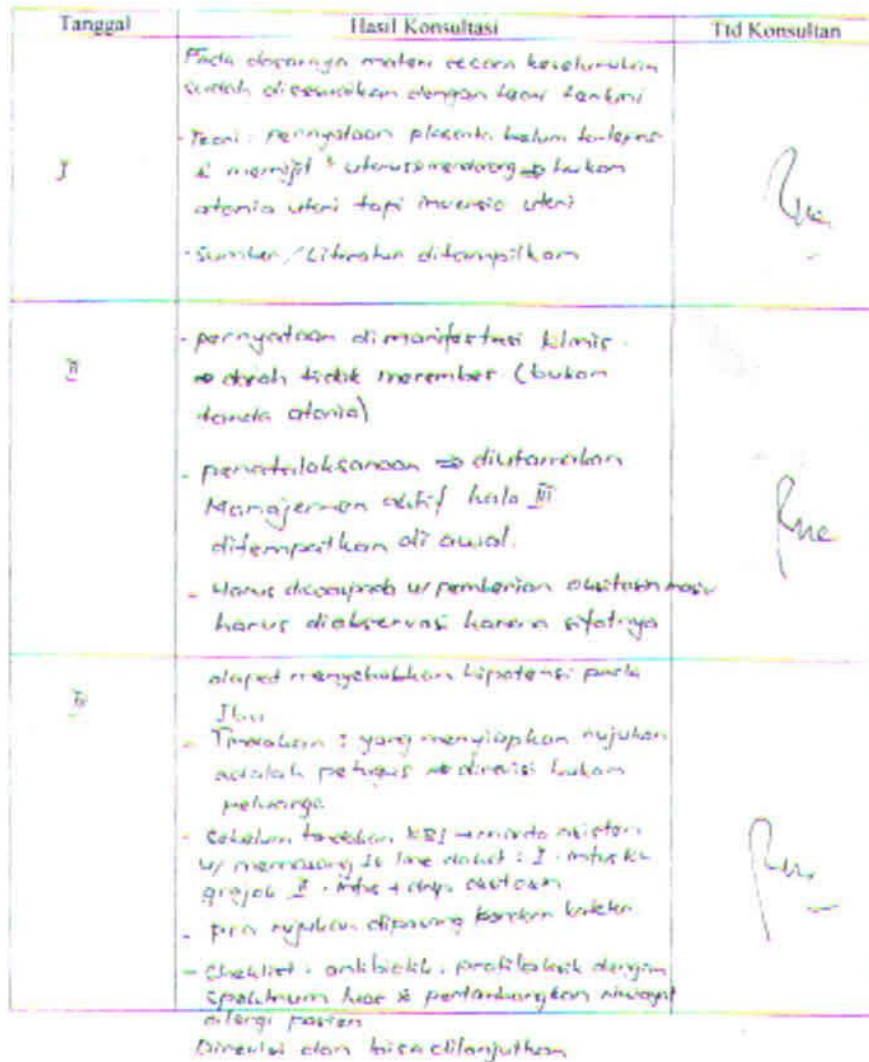 Tanggal Hasil Konsultasi Ttd Konsultan
Pada dasarnya materi secara keseluruhan
sudah disesuaikan dengan teori terkini
I
- Teori : pernyataan placenta belum terlepas
& memijit uterus mendorong ⇒ bukan
atonia uteri tapi inversio uteri
- Sumber / Literatur ditampilkan
II
- pernyataan di manifestasi klinis
⇒ darah tidak merember (bukan
tanda atonia)
- penatalaksanaan ⇒ diutamakan
Manajemen aktif kala III
ditempatkan di awal.
- Harus u/ pemberian
harus diobservasi karena sifatnya
III
dapat menyebabkan hipotensi pada
Ibu
- Tindakan : yang menyiapkan rujukan
adalah petugas ⇒ direvisi bukan
keluarga
- Sebelum tindakan KBI → minta asisten
u/ memasang line : I. infus
II. infus + drip
- pra rujukan dipasang kondom kateter
- Checklist . antibiotik . profilaksik dengan
spektrum luas & pertimbangkan riwayat
alergi pasien
Direvisi dan bisa dilanjutkan